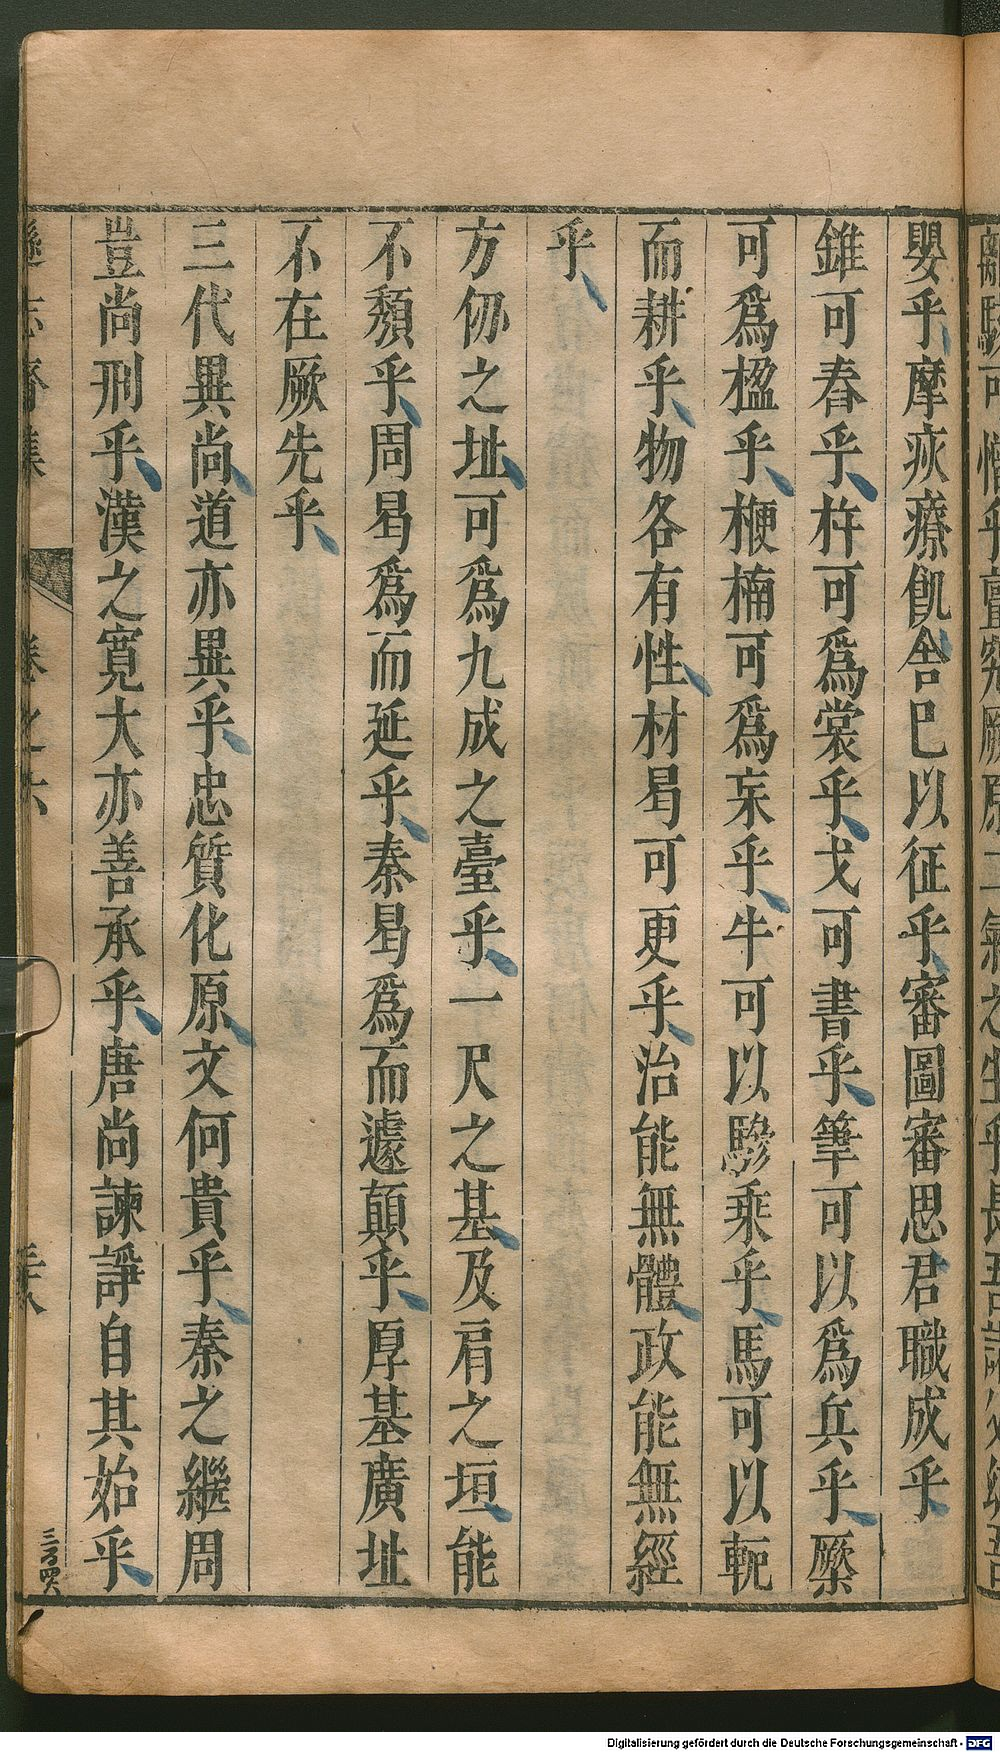 嬰乎摩疢療飢舍巳以征乎審圖審思君職成乎
錐可舂乎杵可爲裳乎戈可書乎筆可以爲兵乎橜
可爲楹乎楩楠可爲杗乎牛可以驂乗乎馬可以軛
而耕乎物各有性材曷可更乎治能無體政能無經
乎
方仞之址可爲九成之臺乎一尺之基及肩之垣能
不頽乎周曷爲而延乎秦曷爲而遽顛乎厚基廣址
不在厥先乎
三代異尚道亦異乎忠質化原文何貴乎秦之繼周
豈尚刑乎漢之寛大亦善承乎唐尚諫諍自其始乎
遜志齋集
卷之六
三十八
三百四六
Digitalisierung gefördert durch die Deutsche Forschungsgemeinschaft - DFG